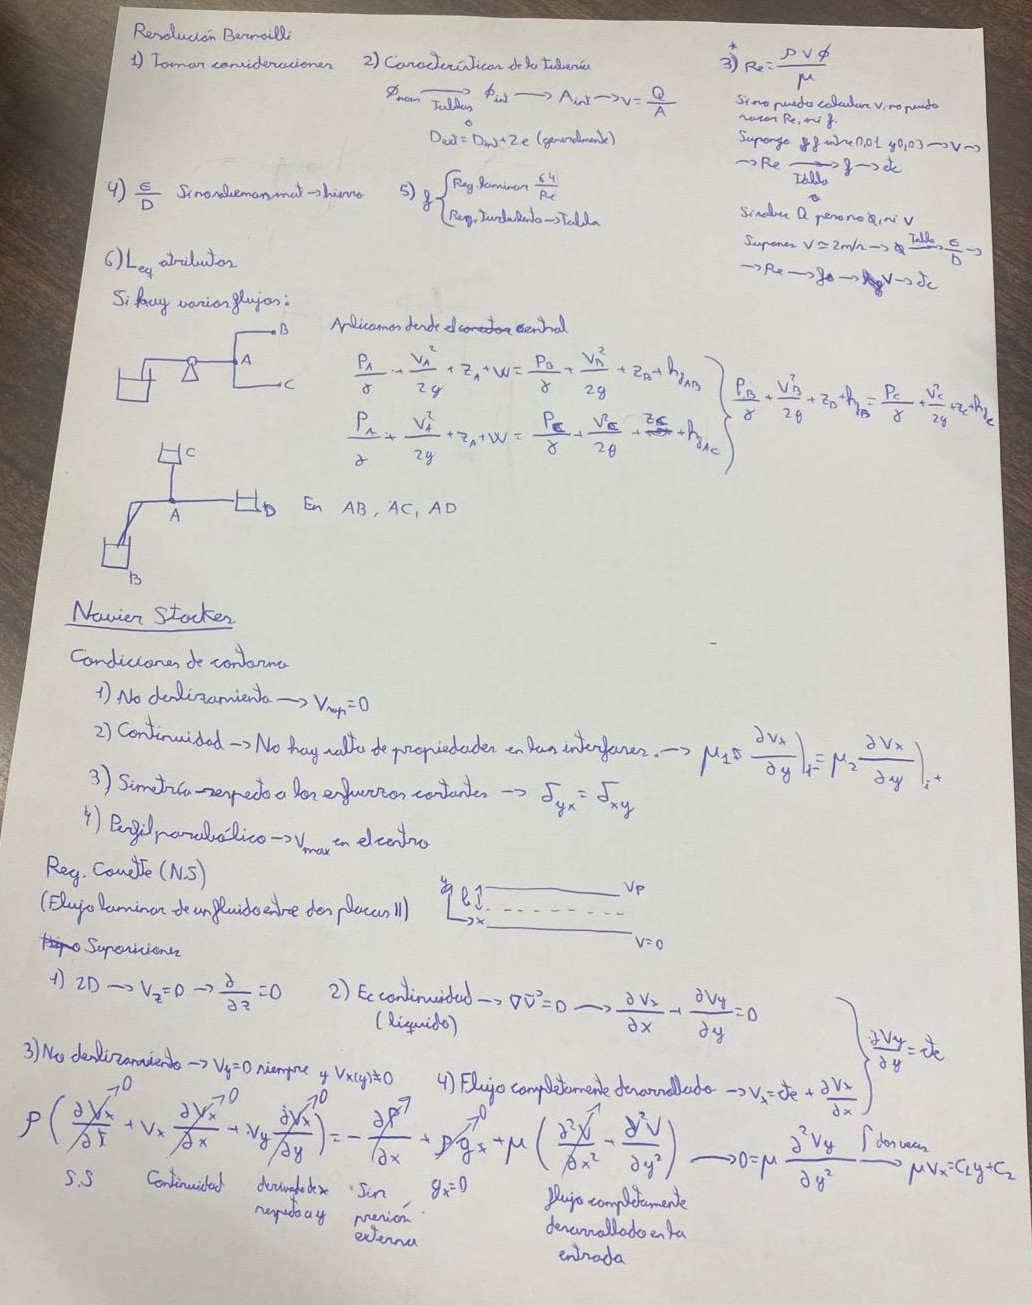 Resolución Bernoilli
1) Tomar consideraciones
2) Características de la tubería
Φnom →(Tablas) Φint → Aint → v = Q/A
o
Dext = Dint + 2e (generalmente)
*
3) Re = ρ v Φ / μ
Si no puedo calcular v, no puedo
sacar Re, ni f.
Supongo f entre 0,01 y 0,03 → V →
→ Re →(Tabla) f → cte
o
Si no sabe D pero no Q, ni V
Suponer V ≃ 2m/s → Tabla ε/D →
→ Re → f → V → cte
4) ε/D Si no dicen mat → hierro
5) f { Reg. laminar 64/Re
Reg. turbulento → Tabla
6) Leq atributos
Si hay varios flujos:
B
A
C
Aplicamos desde el central
PA/γ + VA²/2g + zA + W = PB/γ + VB²/2g + zB + hfAB
PA/γ + VA²/2g + zA + W = PC/γ + VC²/2g + zC + hfAC
PB/γ + VB²/2g + zB + hfB = PC/γ + VC²/2g + zC + hfC
C
A
D
B
En AB, AC, AD
Navier Stockes
Condiciones de contorno
1) No deslizamiento → Vsup = 0
2) Continuidad → No hay salto de propiedades en las interfases. → μ1 ∂Vx/∂y)i- = μ2 ∂Vx/∂y)i+
3) Simetría respecto a los esfuerzos cortantes → δyx = δxy
4) Perfil parabólico → Vmax en el centro
Reg. Couette (N.S)
(Flujo laminar de un fluido entre dos placas ||)
y
l
x
Vp
V=0
Hipo Suposiciones
1) 2D → Vz = 0 → ∂/∂z = 0
2) Ec continuidad → ∇v⃗ = 0 → ∂Vx/∂x + ∂Vy/∂y = 0
(líquido)
3) No deslizamiento → Vy=0 siempre y Vx(y)≠0
4) Flujo completamente desarrollado → Vx = cte + ∂Vx/∂x
} ∂Vy/∂y = cte
ρ ( ∂Vx/∂t→0 + Vx ∂Vx/∂x→0 + Vy ∂Vx/∂y→0 ) = - ∂P/∂x + ρgx→0 + μ ( ∂²V/∂x² + ∂²V/∂y² ) → 0 = μ ∂²Vy/∂y² →(∫ dos veces) μVx = C1y + C2
S.S
Continuidad
derivada de x
respecto a y
Sin
presión
externa
gx=0
flujo completamente
desarrollado en la
entrada